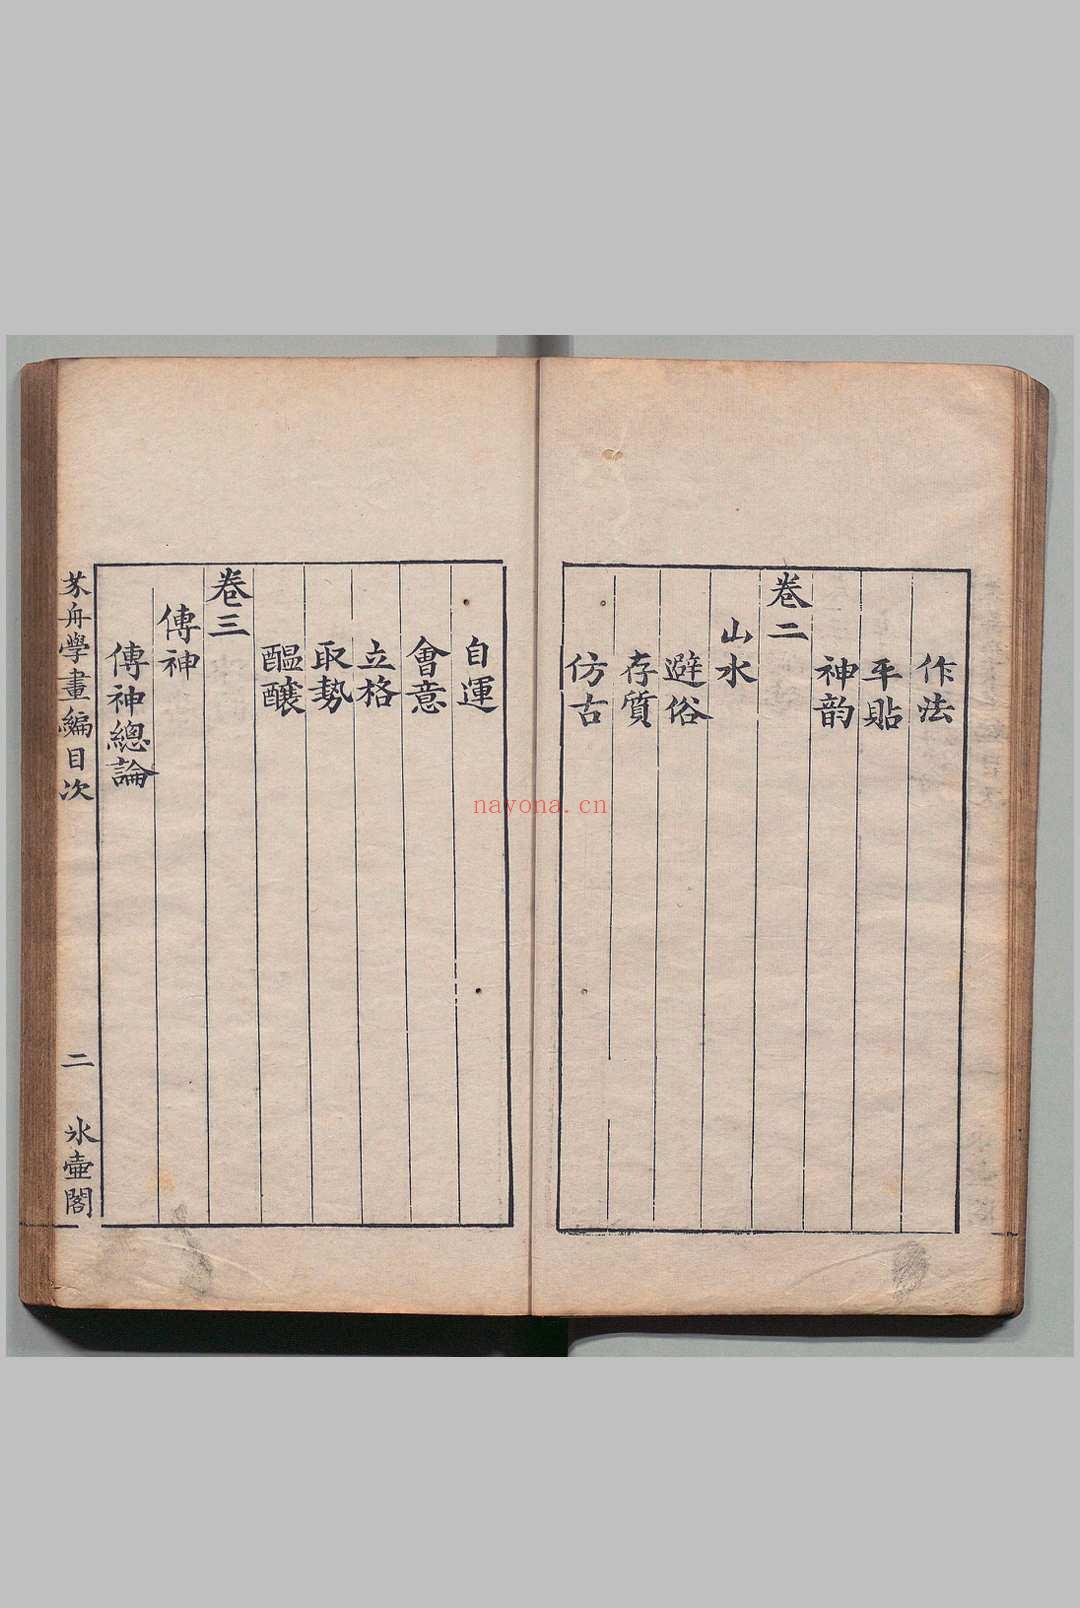 作法
平貼
神韵
卷二
山水
避俗
存質
仿古
自運
會意
立格
取勢
醞釀
卷三
傳神
傳神總論
芥舟學畫編目次
二
氷壺閣
nayona.cn